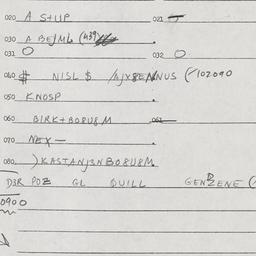 020 A S+UP 021
030 A BEJML (439)
031 O 032 O
040 # NISL $ /NJXBEN/NUS (-102090
050 KNOSP
060 BIRK+BO8U8M 061
070 NEX-
080 )KASTANJSNBO8U8M
D3R POZ GL QUILL GENBZENE (
0900